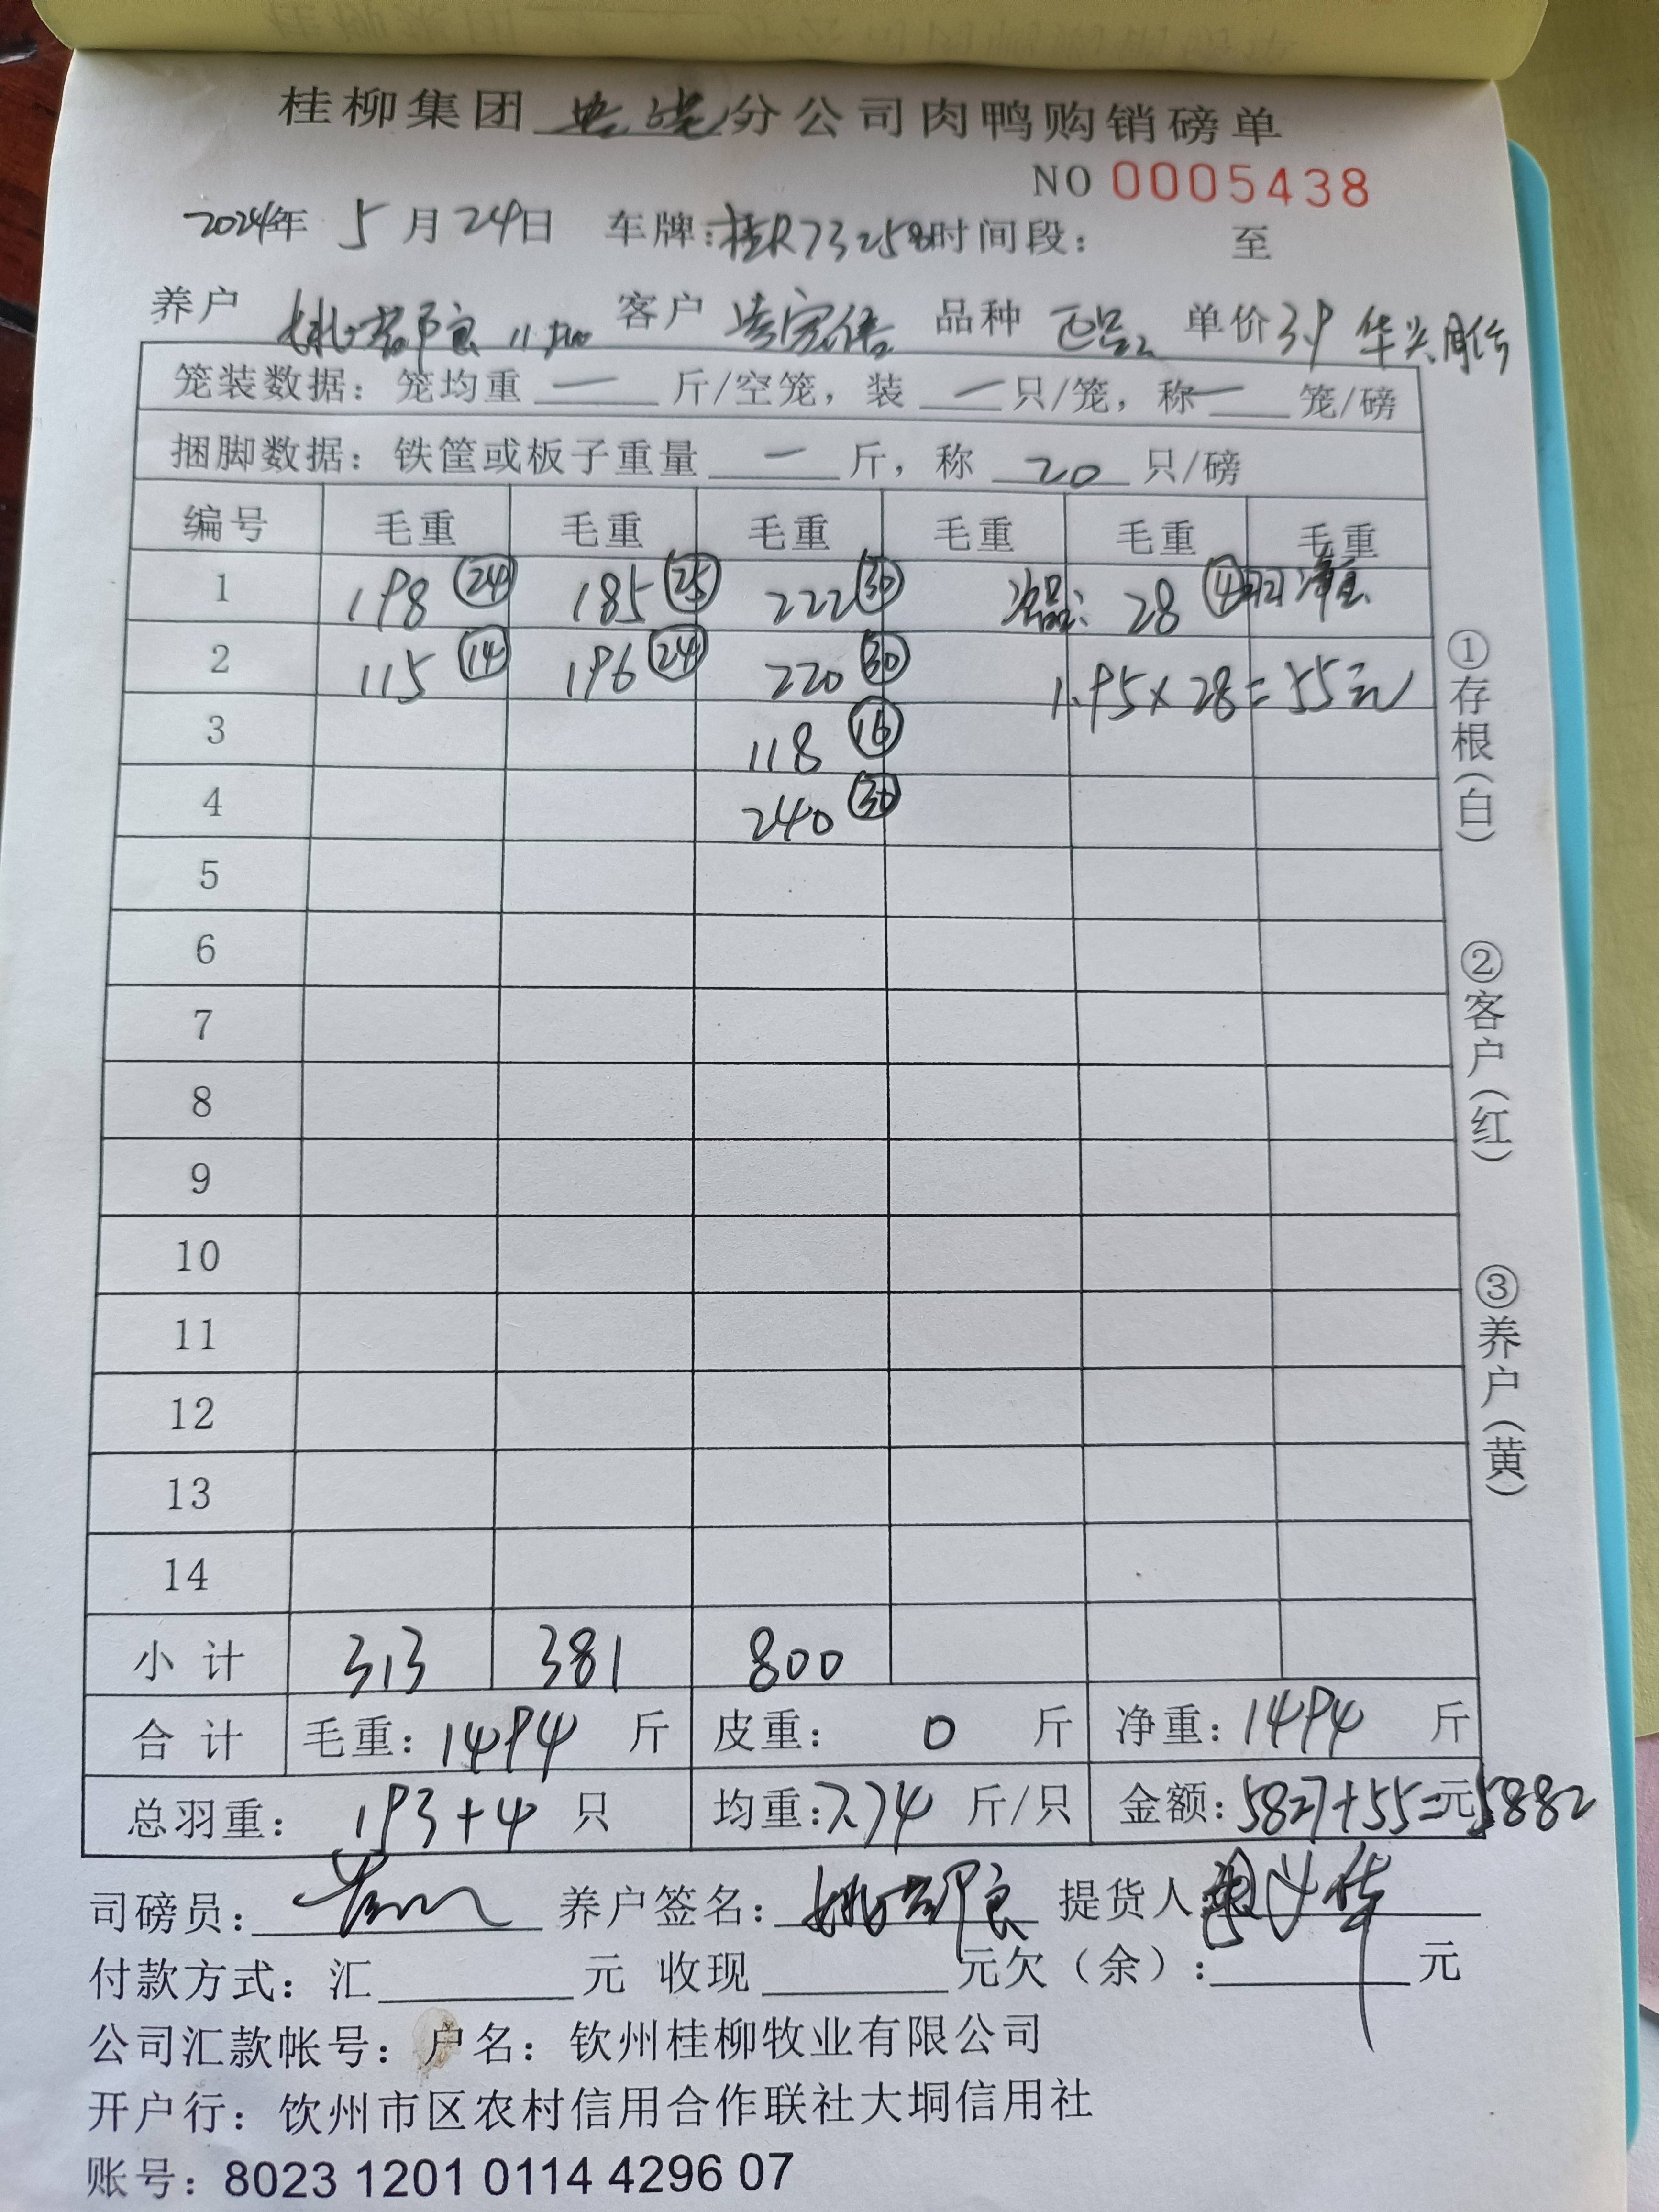 桂柳集团 分公司肉鸭购销磅单
NO 0005438
2024年 5月24日 车牌:桂R73258 时间段: 至
养户 客户 品种 正品 单价 3.9
笼装数据: 笼均重 一 斤/空笼, 装 一 只/笼, 称 一 笼/磅
捆脚数据: 铁筐或板子重量 一 斤, 称 20 只/磅
编号 毛重 毛重 毛重 毛重 毛重 毛重
1 198 ㉔ 185 ㉕ 222 ㉚ 28 ④只 净重
2 115 ⑭ 196 ㉔ 220 ㉚ 1.95×28=55元
3 118 ⑯
4 240 ㉚
5
6
7
8
9
10
11
12
13
14
小计 313 381 800
合计 毛重: 1494 斤 皮重: 0 斤 净重: 1494 斤
总羽重: 193+4 只 均重: 7.74 斤/只 金额: 5827+55=元5882
司磅员: 养户签名: 提货人
付款方式: 汇 元 收现 元欠(余): 元
公司汇款帐号: 户名: 钦州桂柳牧业有限公司
开户行: 饮州市区农村信用合作联社大垌信用社
账号: 8023 1201 0114 4296 07
①存根(白)
②客户(红)
③养户(黄)